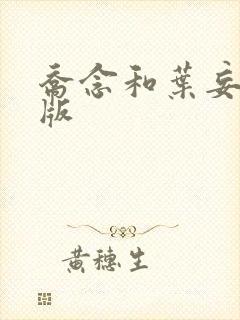 乔念和葉妄
版
黄穗生